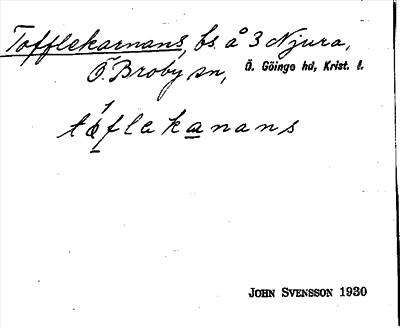 Tofflekarnans, bs. å 3 Njura,
Ö. Broby sn, Ö. Göinge hd, Krist. l.
tòflekanans
JOHN SVENSSON 1930